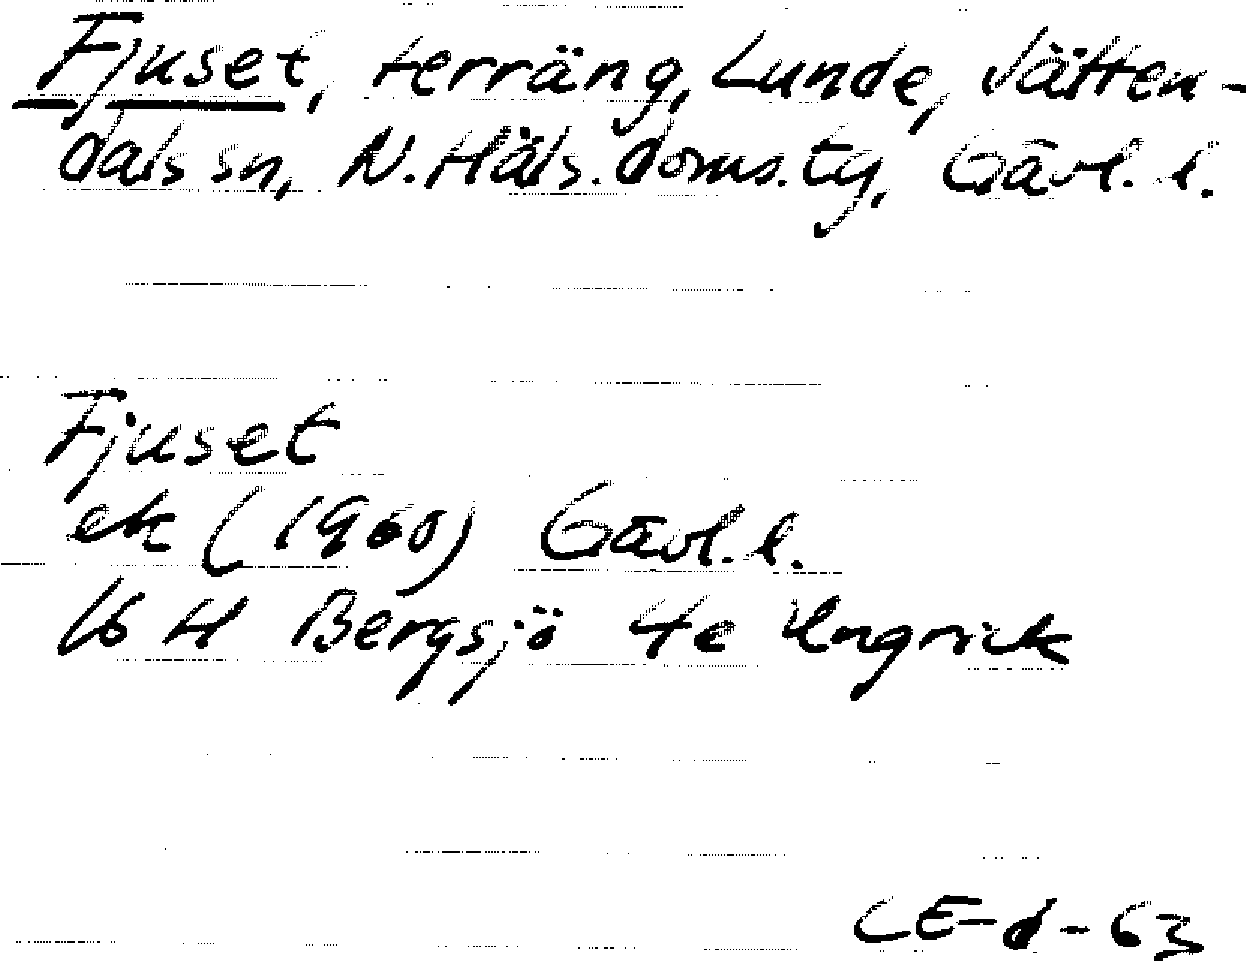 Fjuset, terräng, Lunde, Jätten-
dals sn, N. Häls. doms. tg, Gävl. l.
Fjuset
ek (1960) Gävl. l.
16 H Bergsjö 4e
CE-d-63